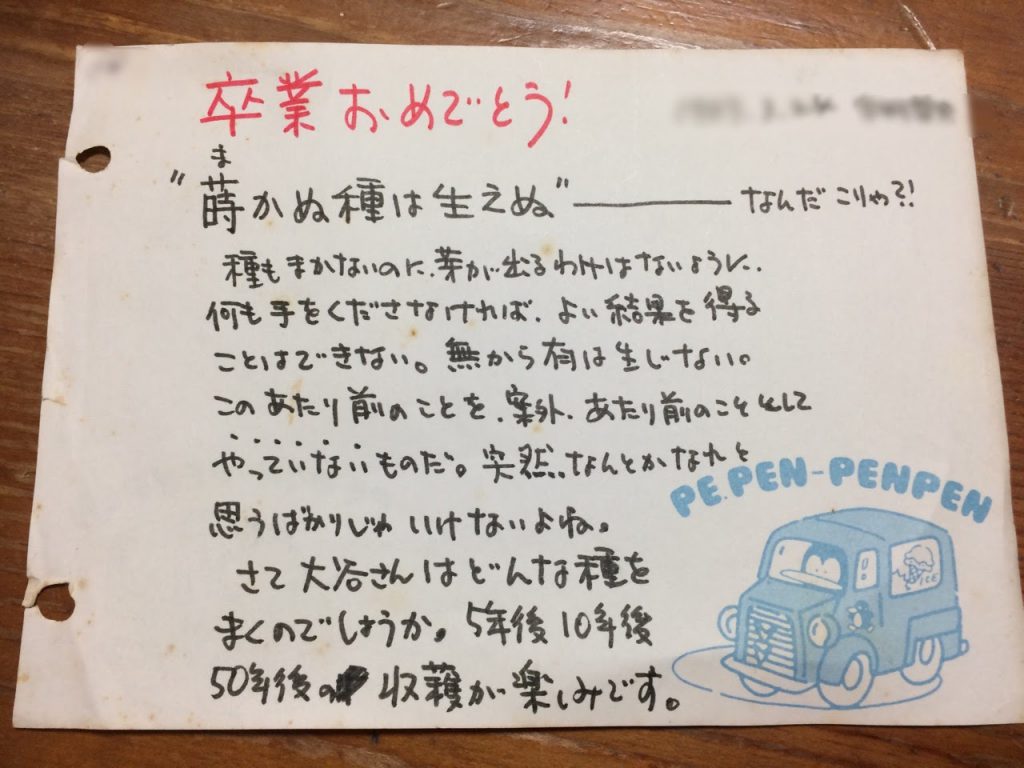 卒業おめでとう!
ま
"蒔かぬ種は生えぬ" ――― なんだこりゃ?!
種もまかないのに、芽が出るわけはないように、
何も手をくださなければ、よい結果を得る
ことはできない。無から有は生じない。
このあたり前のことを、案外、あたり前のこととして
やっていないものだ。突然、なんとかなれと
思うばかりじゃいけないよね。
さて大谷さんはどんな種を
まくのでしょうか。5年後10年後
50年後の収穫が楽しみです。
PE.PEN-PENPEN
ICE